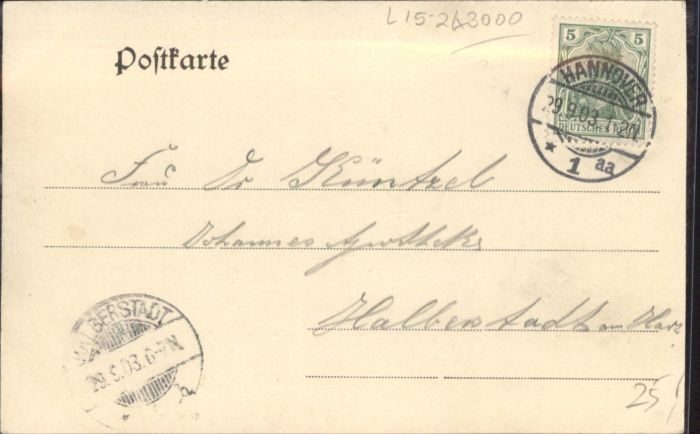 L15-2A3000
Postkarte
5 5
DEUTSCHES REICH
HANNOVER
29.9.03. 1-2N
* 1 aa
Frau Dr Küntzel
Johannes Apotheke
Halberstadt am Harz
HALBERSTADT
29.9.03. 6-7N.
25